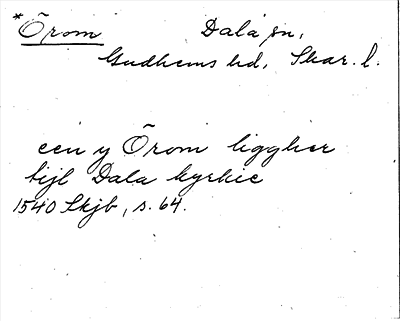 *Örom Dala sn,
Gudhems hd, Skar. l.
een y Örom liggher
tijl Dala kyrkie
1540 Skjb, s. 64.